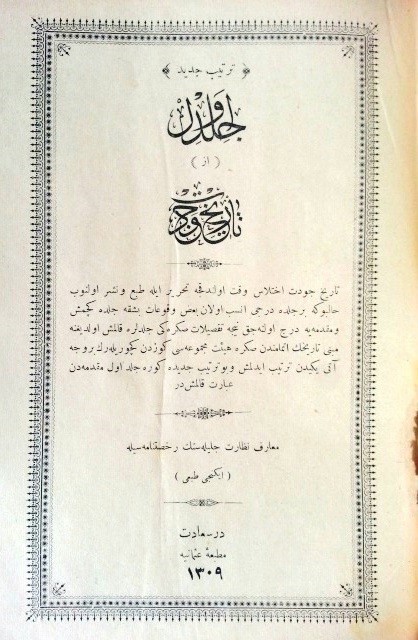 ترتيب جديد
جلد اول
( از )
تاريخ جودت
تاريخ جودت اختلاس وقت اولندقجه تحرير ايله طبع و نشر اولنوب
حالبوكه برجلده درجى انسب اولان بعض وقوعات بشقه جلده كچمش
و مقدمه يه درج اولنه جق نيجه تفصيلات صكره كى جلدلره قالمش اولديغنه
مبنى تاريخك اتمامندن صكره هيئت مجموعه سى كوزدن كچوريله رك بروجه
آتى يكيدن ترتيب ايدلمش و بو ترتيب جديده كوره جلد اول مقدمه دن
عبارت قالمشدر
معارف نظارت جليله سنك رخصتنامه سيله
( ايكنجى طبعى )
درسعادت
مطبعۀ عثمانيه
١٣٠٩